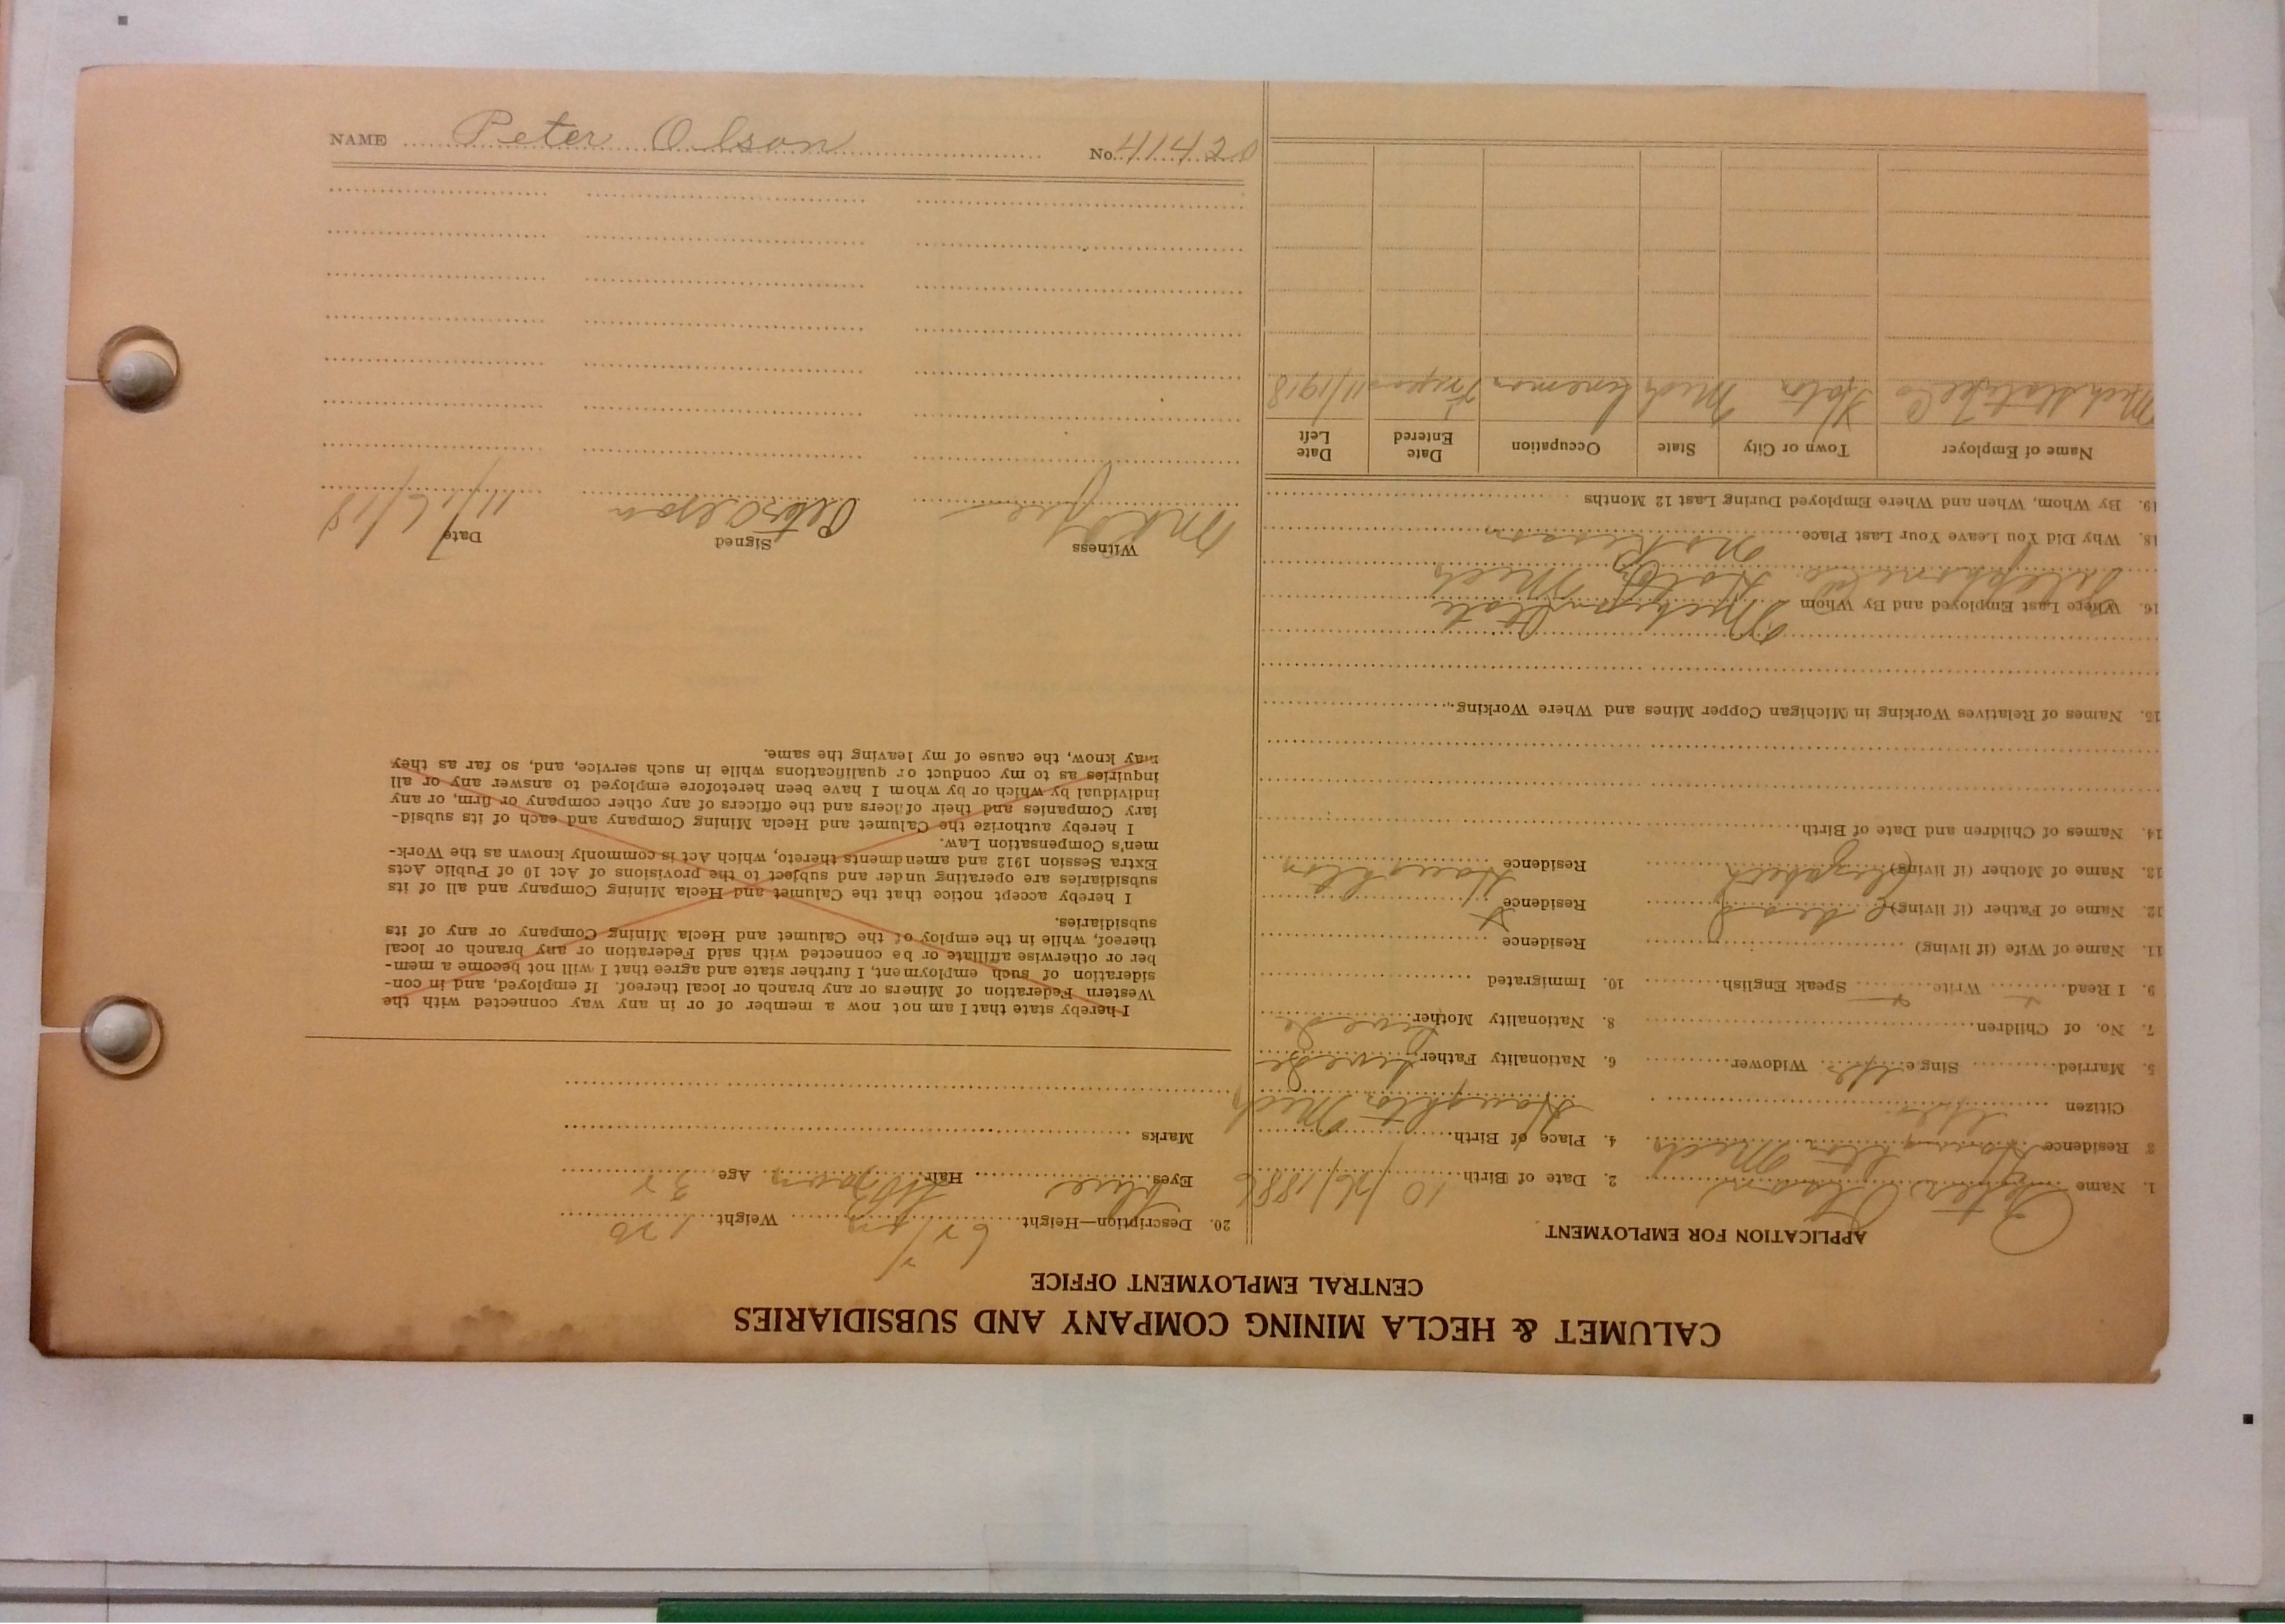 CALUMET & HECLA MINING COMPANY AND SUBSIDIARIES
CENTRAL EMPLOYMENT OFFICE
APPLICATION FOR EMPLOYMENT
1. Name Peter Olson 2. Date of Birth 10/26/1886
3 Residence Houghton Mich 4. Place of Birth Houghton Mich
Citizen
5. Married Single Widower 6. Nationality Father Swede
7. No. of Children 8. Nationality Mother Swede
9. I Read Write Speak English 10. Immigrated
11. Name of Wife (if living) Residence
12. Name of Father (if living) dead Residence
13. Name of Mother (if living) Elizabeth Residence Houghton
14. Names of Children and Date of Birth
15. Names of Relatives Working in Michigan Copper Mines and Where Working
16. Where Last Employed and By Whom Michigan State
Telephone Co Hoton Mich
18. Why Did You Leave Your Last Place no reason
19. By Whom, When and Where Employed During Last 12 Months
Name of Employer Town or City State Occupation Date Entered Date Left
Mich State Tel Co Hoton Mich Lineman 11/1918
20. Description—Height 6 Weight 170
Eyes Blue Hair Age 32
Marks
I hereby state that I am not now a member of or in any way connected with the
Western Federation of Miners or any branch or local thereof. If employed, and in con-
sideration of such employment, I further state and agree that I will not become a mem-
ber or otherwise affiliate or be connected with said Federation or any branch or local
thereof, while in the employ of the Calumet and Hecla Mining Company or any of its
subsidiaries.
I hereby accept notice that the Calumet and Hecla Mining Company and all of its
subsidiaries are operating under and subject to the provisions of Act 10 of Public Acts
Extra Session 1912 and amendments thereto, which Act is commonly known as the Work-
men's Compensation Law.
I hereby authorize the Calumet and Hecla Mining Company and each of its subsid-
iary Companies and their officers and the officers of any other company or firm, or any
individual by which or by whom I have been heretofore employed to answer any or all
inquiries as to my conduct or qualifications while in such service, and, so far as they
may know, the cause of my leaving the same.
Witness Signed Date
Peter Olson 11/16/18
NAME Peter Olson No. 41420